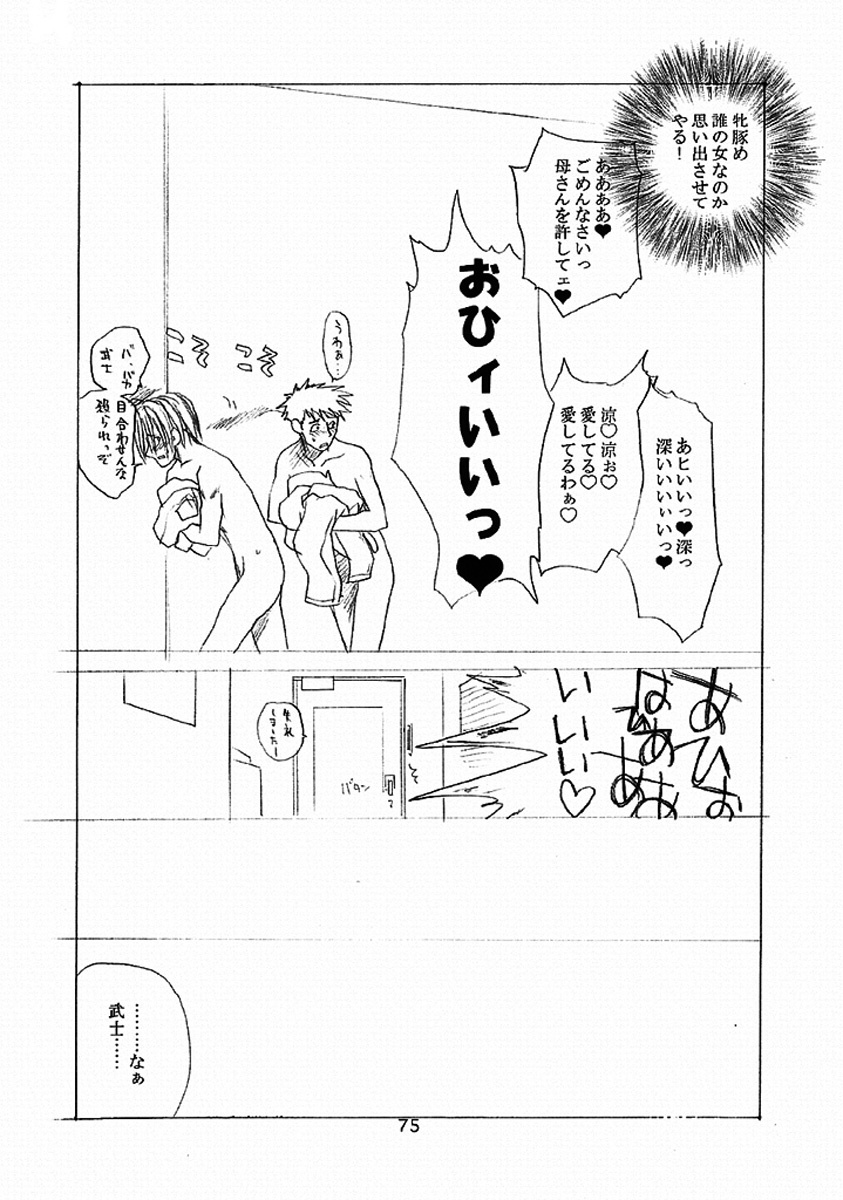 牝豚め
誰の女なのか
思い出させて
やる!
ああああ♥
ごめんなさいっ
母さんを許してェ♥
おひィいいっ♥
あヒいいっ♥深っ
深いいいぃいっ♥
涼♡涼ぉ♡
愛してる♡
愛してるわぁ♡
うわぁ…
こそ
こそ
バ、バカ
武士
目合わせんな
殴られっぞ
あひぉ
はひぁああぉ
いいいい♡
失礼
しましたー
そそ
バタン
………なぁ
武士……
75